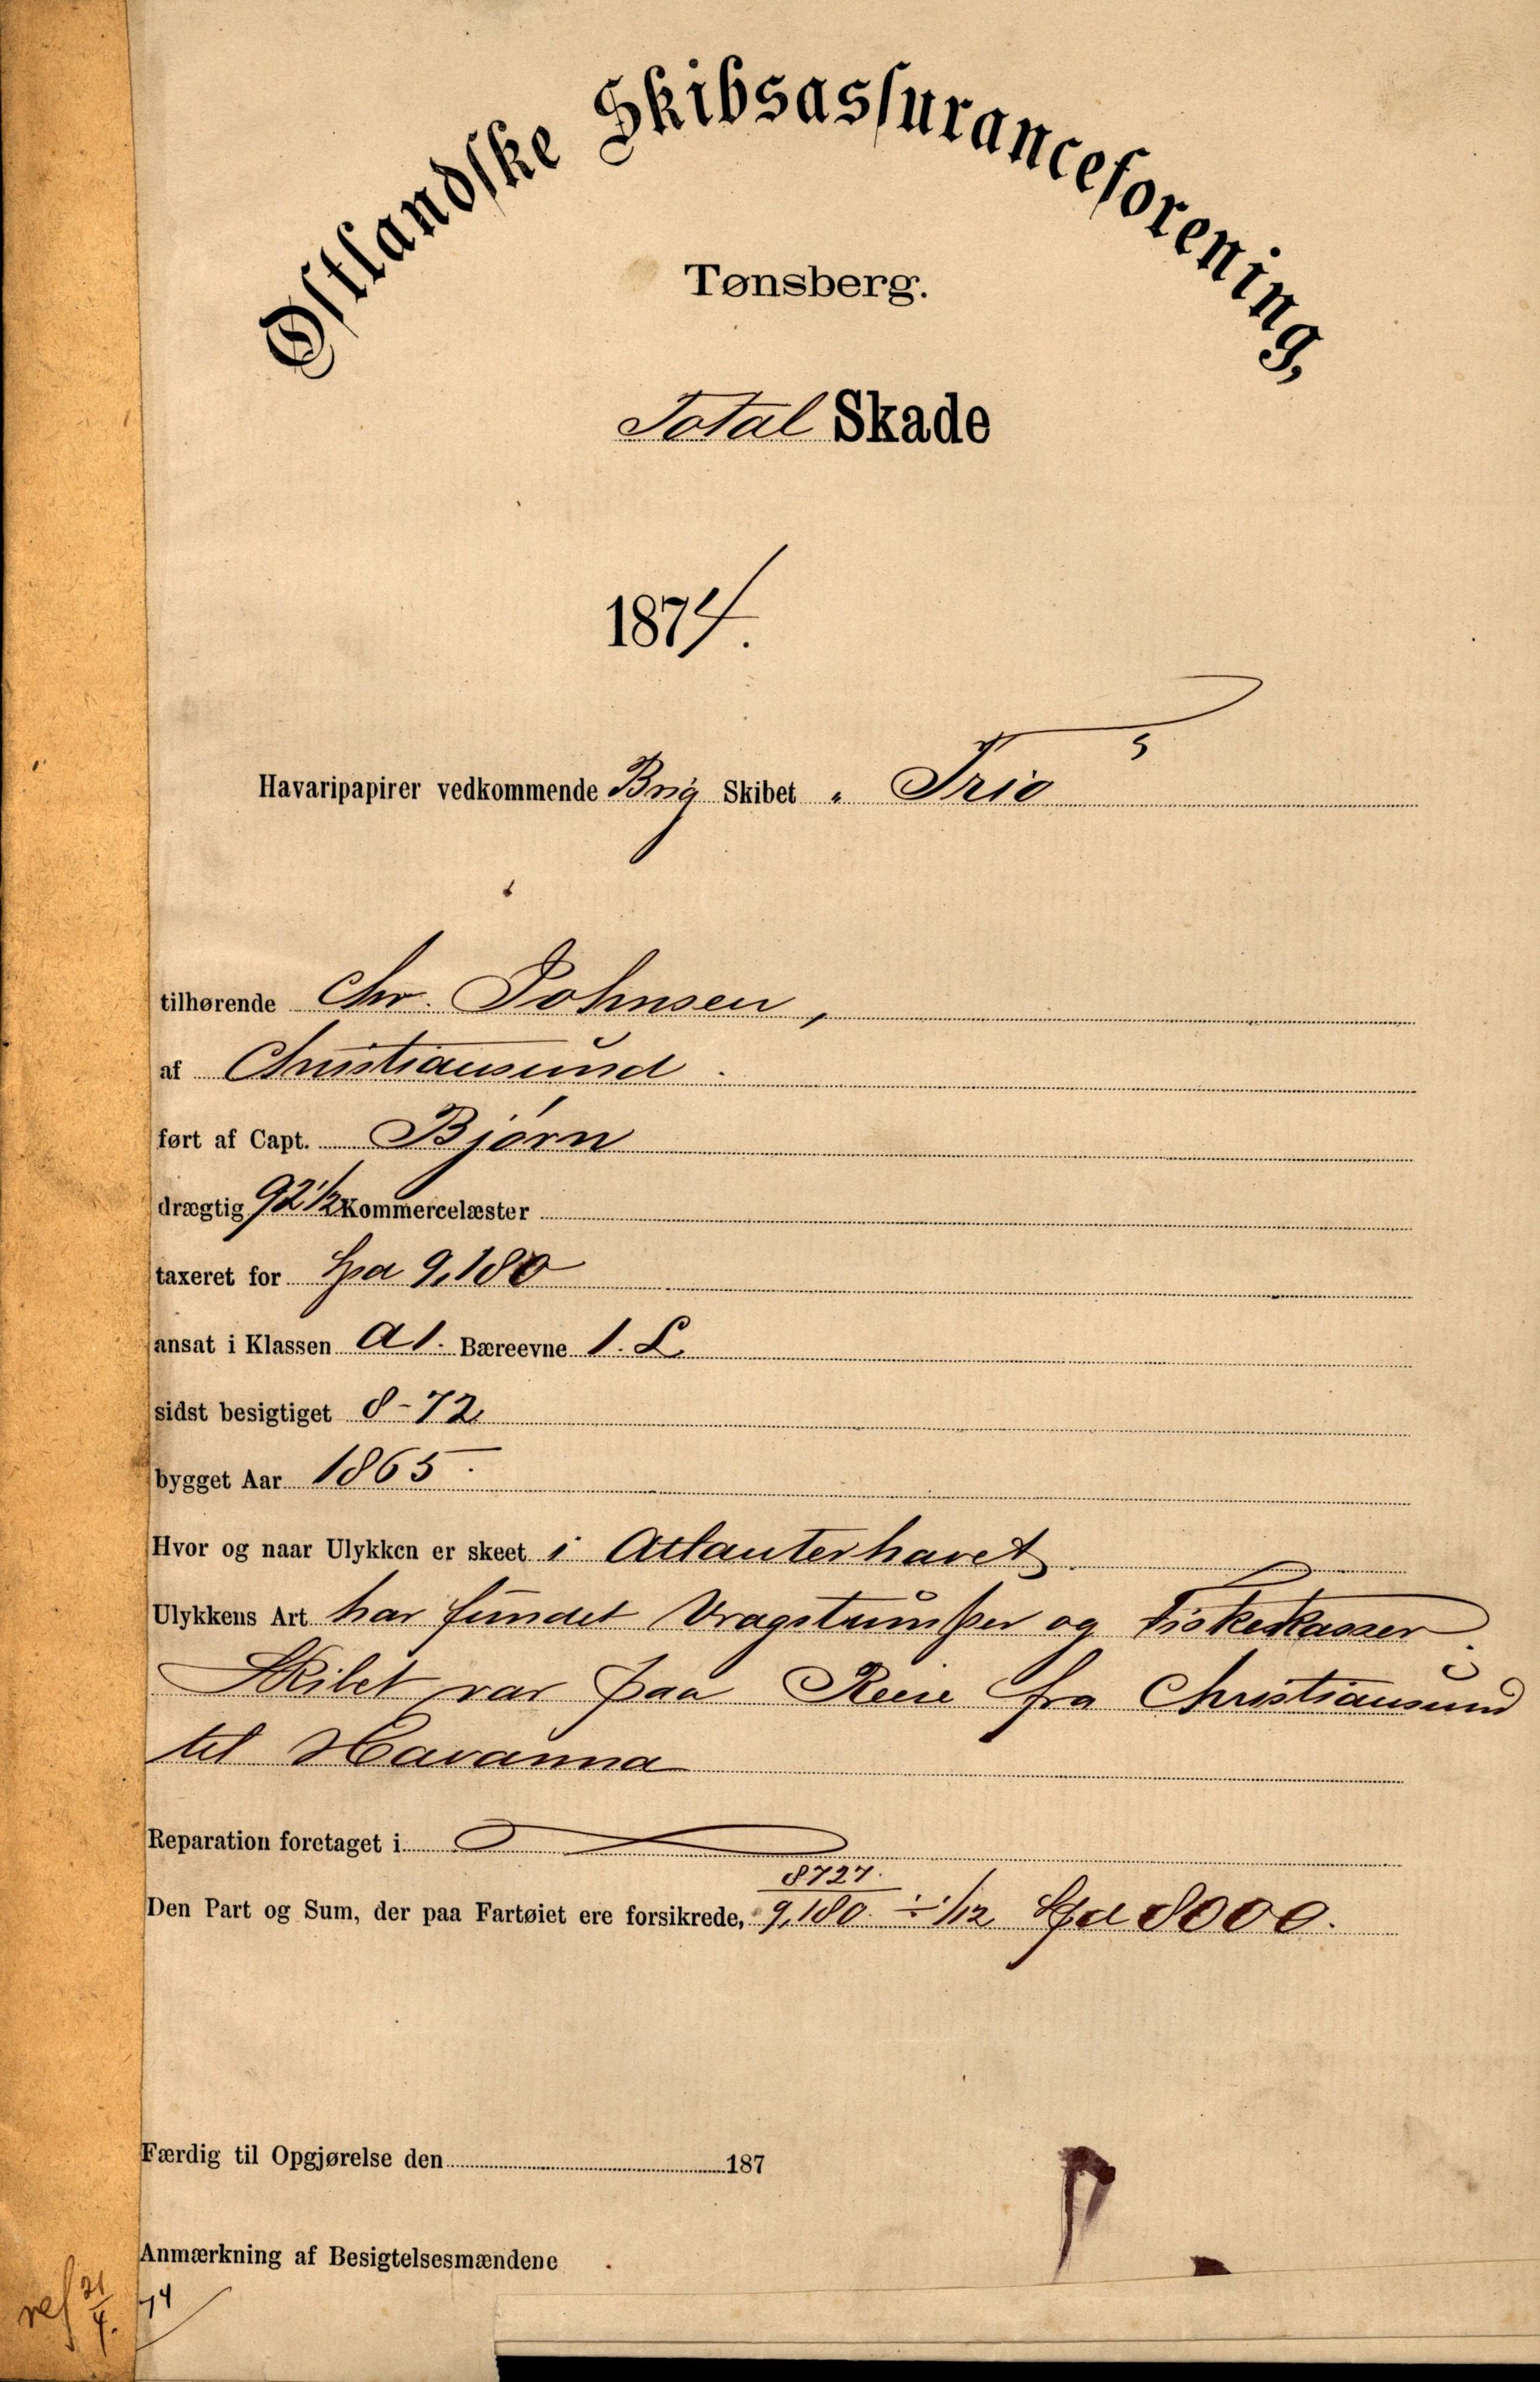 Østlandske Skibsassuranceforening,
Tønsberg.
Total Skade
1874.
Havaripapirer vedkommende Brig Skibet „ Trio "
tilhørende Chr. Johnsen,
af Christiansund.
ført af Capt. Bjørn
drægtig 92 1/2 Kommercelæster
taxeret for Spd 9,180
ansat i Klassen A 1. Bæreevne 1. L.
sidst besigtiget 8-72
bygget Aar 1865.
Hvor og naar Ulykken er skeet i Atlanterhavet
Ulykkens Art har fundet Vragstumper og Fiskekasser.
Skibet var paa Reise fra Christiansund
til Havanna
Reparation foretaget i
8727.
Den Part og Sum, der paa Fartøiet ere forsikrede, 9,180 ÷ 1/12 Spd 8000.
Færdig til Opgjørelse den 187
Anmærkning af Besigtelsesmændene
ref 21/4. 74